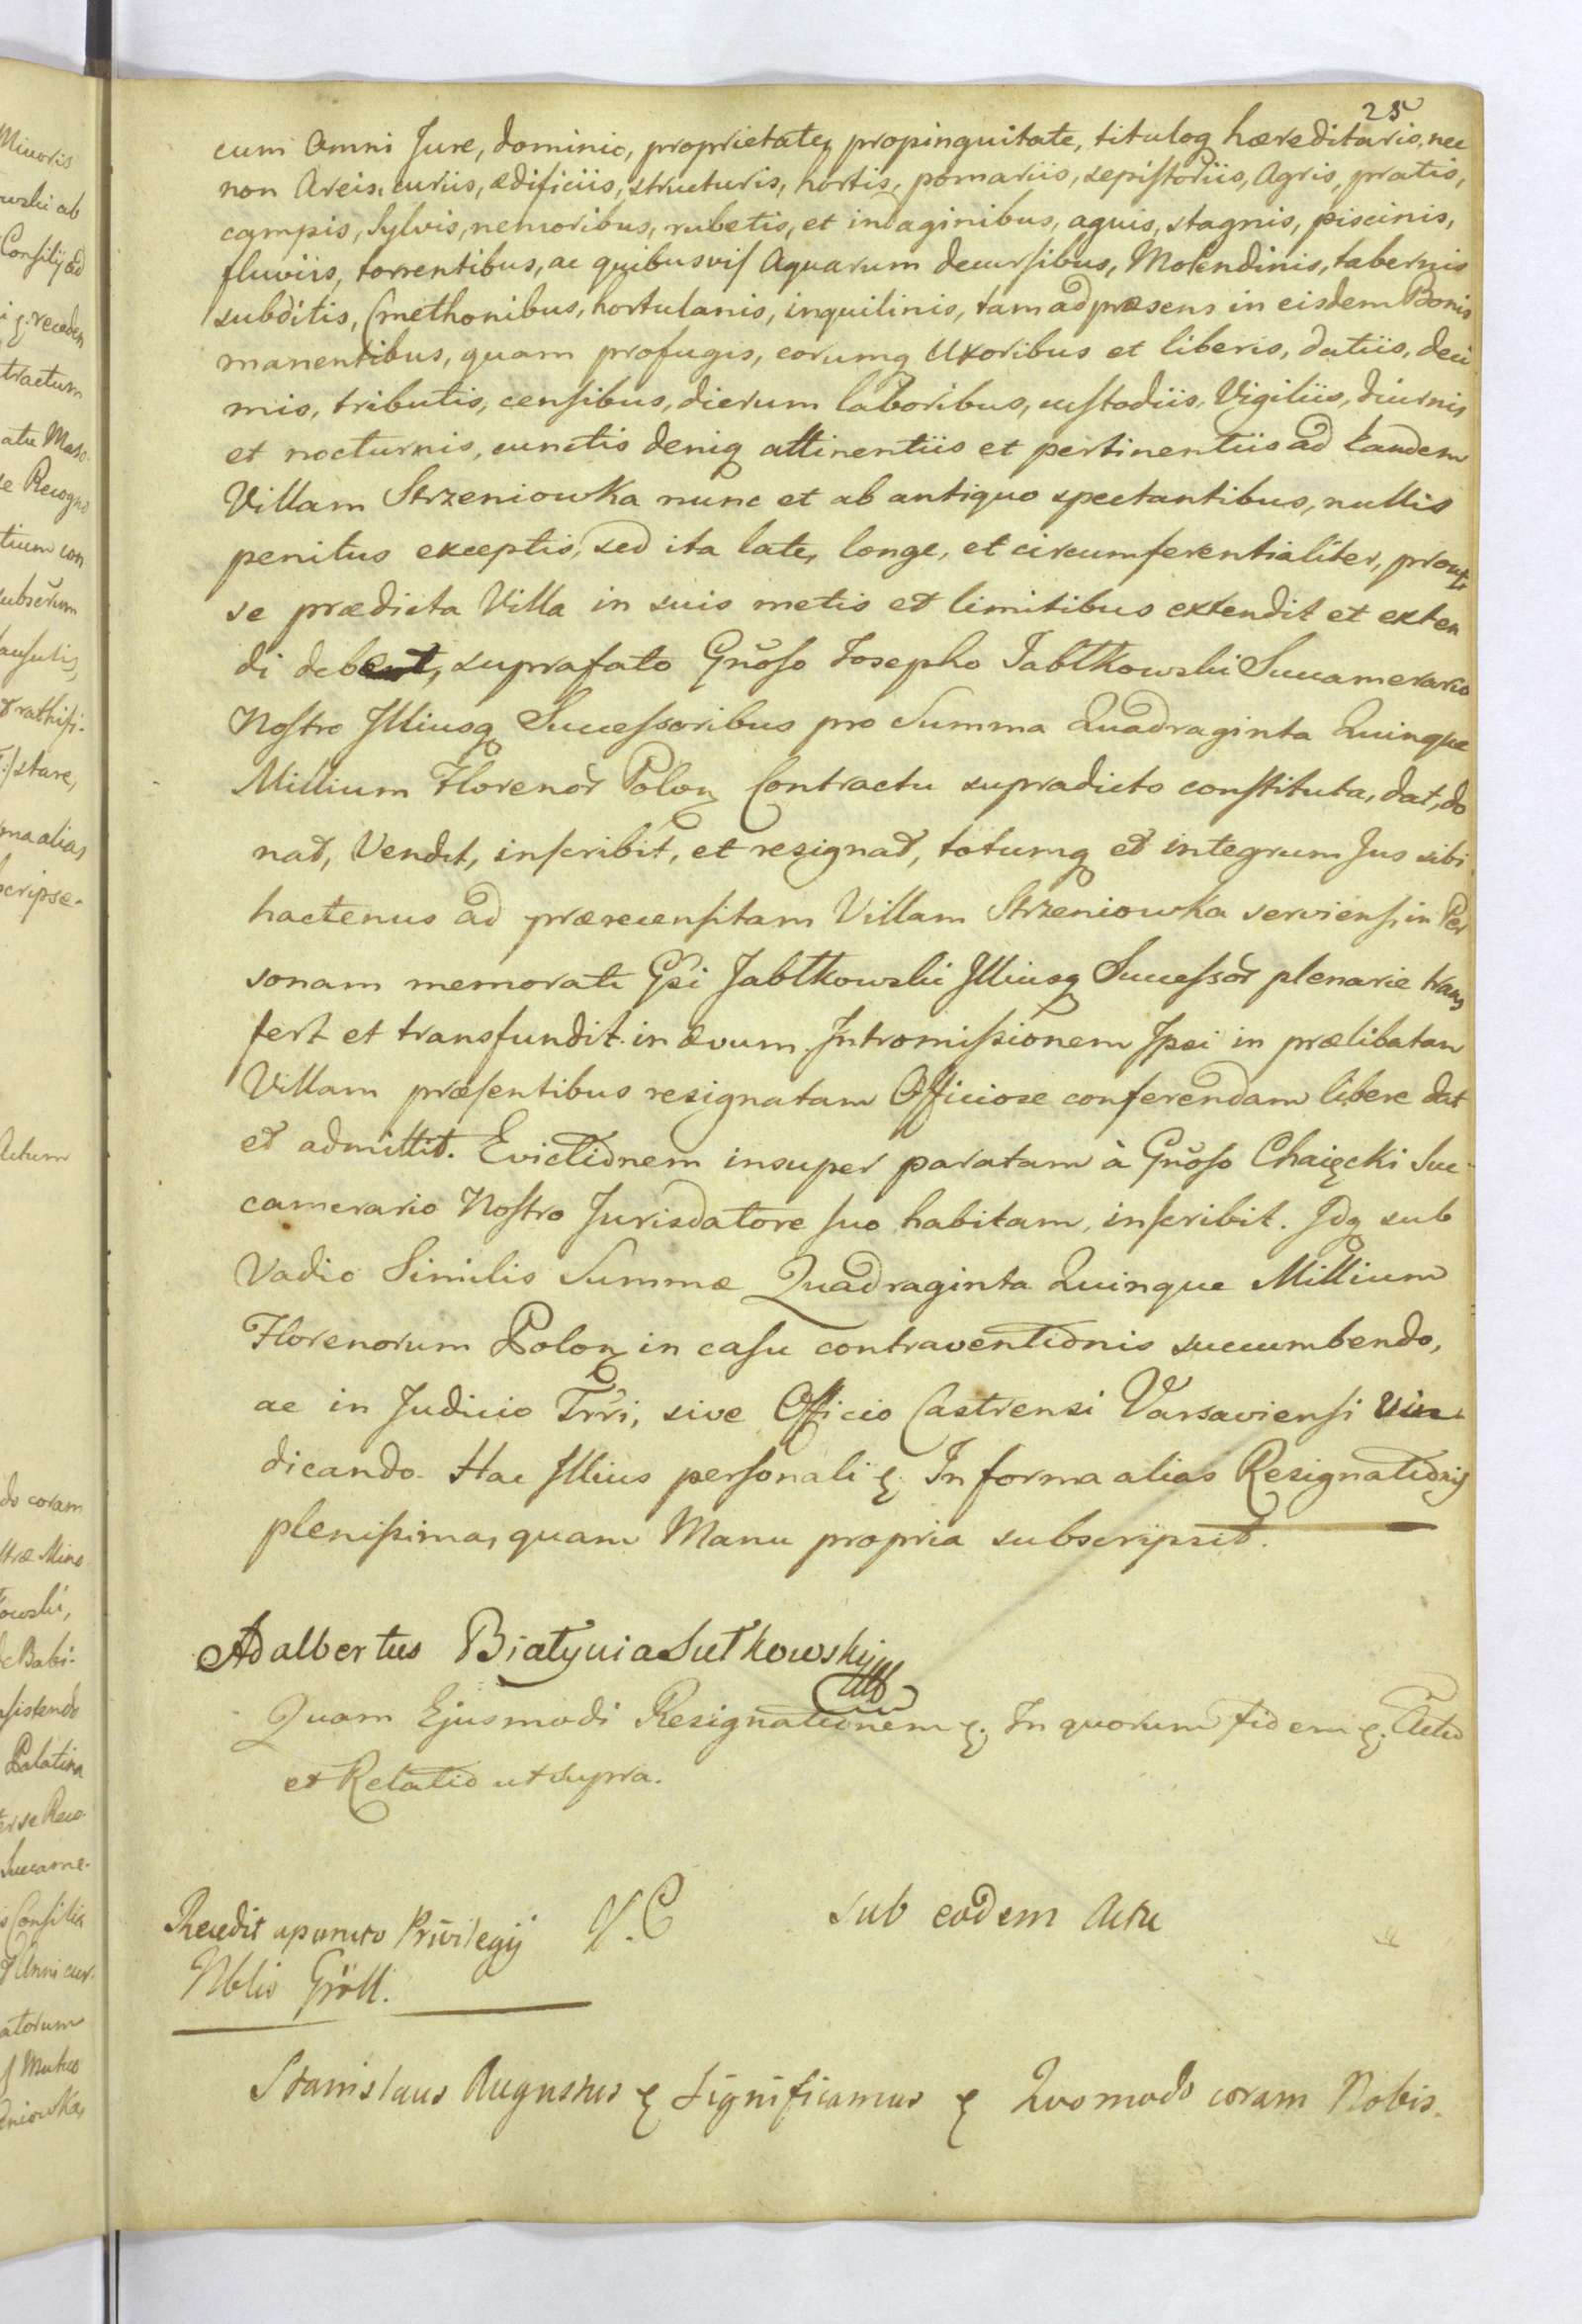 25
cum Omni Jure, dominio, proprietateq propinquitate, tituloq hæreditario, nec
non Areis, curiis, ædificiis, structuris, hortis, pomariis, sepistoriis, Agris, pratis,
campis, Sylvis, nemoribus, rubetis, et indaginibus, aquis, stagnis, piscinis,
fluviis, torrentibus, ac quibusvis Aquarum decursibus, Molendinis, tabernis
subditis, Cmethonibus, hortulanis, inquilinis, tam ad præsens in eisdem Bonis
manentibus, quam profugis, eorumq Uxoribus et liberis, datiis, deci
mis, tributis, censibus, dierum laboribus, custodiis, Vigiliis, diurnis
et nocturnis, cunctis deniq attinentiis et pertinentiis ad Eandem
Villam Strzeniowka nunc et ab antiquo spectantibus, nullis
penitus exceptis, sed ita late, longe, et circumferentialiter, prout
se prædicta Villa in suis metis et limitibus extendit et exten
di debet, suprafato Gnoso Josepho Jabłkowski Succamerario
Nostro Illiusq Successoribus pro Summa Quadraginta Quinque
Millium Florenor Polon Contractu supradicto constituta, dat, do
nat, Vendit, inscribit, et resignat, totumq et integrum Jus sibi
hactenus ad præcensitam Villam Strzeniowka serviens, in Per
sonam memorati Gsi Jabłkowski Illiusq Successor plenarie trans
fert et transfundit in ævum. Intromissionem Ipsi in prælibatam
Villam præsentibus resignatam Officiose conferendam libere dat
et admittit. Evictionem insuper paratam à Gnoso Chaięcki Suc
camerario Nostro Jurisdatore suo habitam, inscribit. Idq sub
Vadio Similis Summæ Quadraginta Quinque Millium
Florenorum Polon in casu contraventionis succumbendo,
ac in Judicio Trri, sive Officio Castrensi Varsaviensi vin
dicando. Hac Illius personali &. In forma alias Resignationis
plenissima, quam Manu propria subscripsit.
Adalbertus Białynia Sutkowski
Quam Ejusmodi Resignationem &. In quorum fidem &. Actu
et Relatio ut supra.
Recedit a puncto Privilegij V. C sub eodem Actu
Nblis Gröll.
Stanislaus Augustus & Significamus & Quomodo coram Nobis.